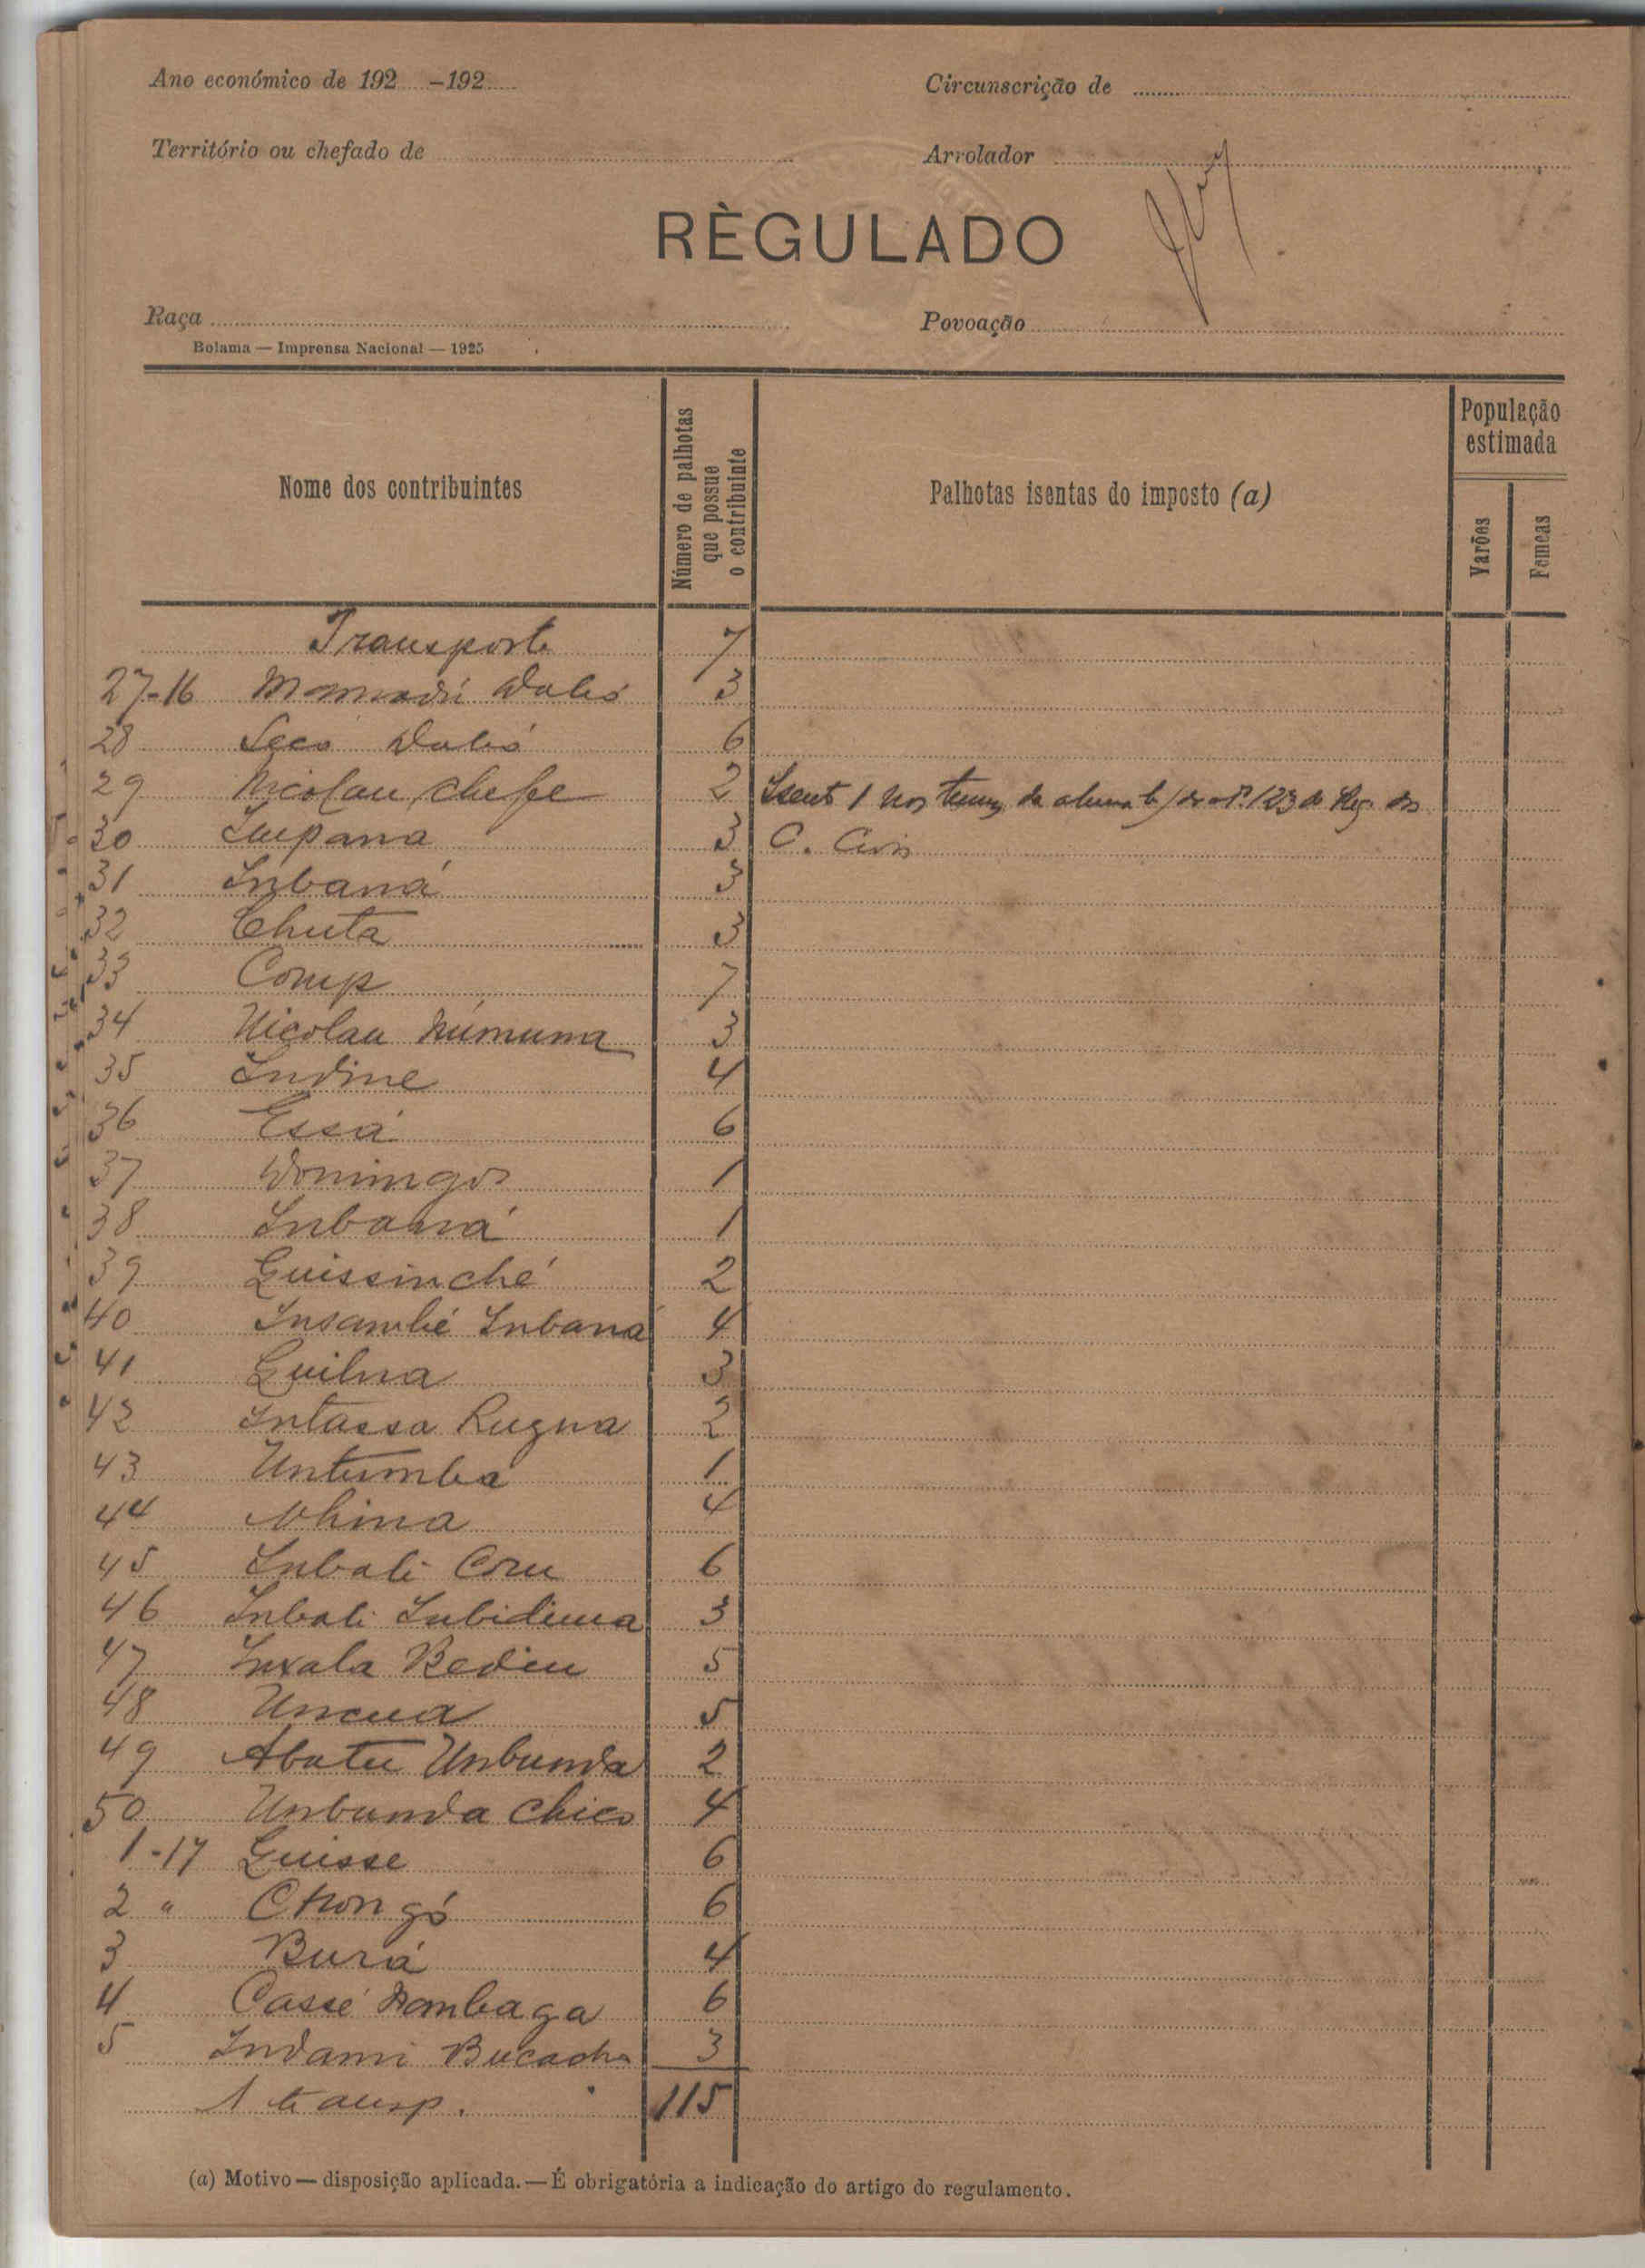 Ano económico de 192 -192
Circunscrição de
Território ou chefado de
Arrolador
RÈGULADO
Raça
Povoação
Bolama — Imprensa Nacional — 1925
Nome dos contribuintes
Número de palhotas que possue o contribuinte
Palhotas isentas do imposto (a)
População estimada
Varões
Femeas
Transporte 7
27-16 Mamadú Dabó 3
28 Seco Dabó 6
29 Nicolau, chefe 2 Isento 1 nos termos da alinea b) do artº 123 do Reg. das
30 3 C. Civis
31 Inbaná 3
32 Chuta 3
33 Comp 7
34 Nicolau Númuma 3
35 Indine 4
36 Essá 6
37 Domingos 1
38 Inbaná 1
39 Guissinché 2
40 Insambé Inbana 4
41 Guilna 3
42 Intassa Rugna 2
43 Untumba 1
44 Nhina 4
45 Inbali Coru 6
46 Inbali 3
47 Inxala Bediu 5
48 Uncua 5
49 Abatu Unbunda 2
50 Unbunda Chico 4
1-17 Guisse 6
2 " Chongó 6
3 Burá 4
4 Cassé Nambaga 6
5 Indami 3
A transp. 115
(a) Motivo — disposição aplicada. — É obrigatória a indicação do artigo do regulamento.